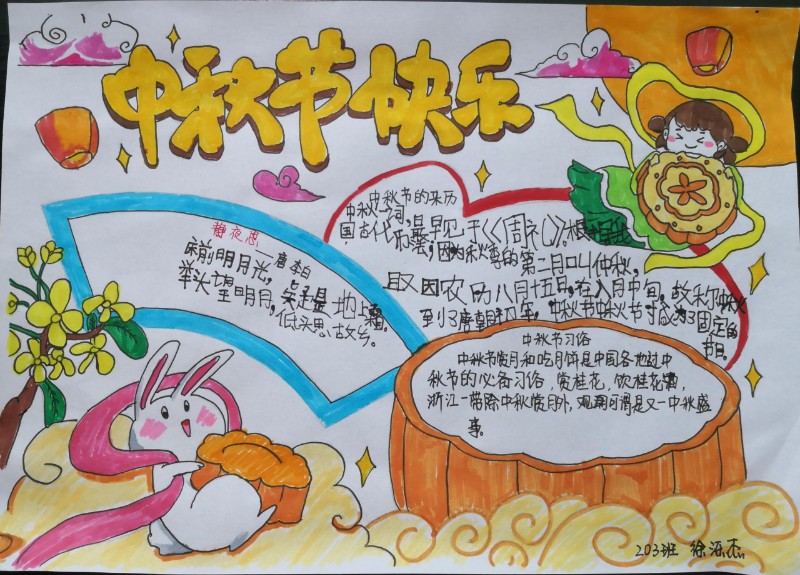 中秋节快乐
静夜思
唐李白
床前明月光，
地上霜。
举头望明月，
低头思故乡。
中秋节的来历
中秋一词，最早见于《周礼》。根
国古代历法，因为秋季的第二月叫仲秋，
且又因农历八月十五日，在八月中旬，故称中秋
到了唐朝初年，中秋节中秋节才成为了固定的
节日。
中秋节习俗
中秋节赏月和吃月饼是中国各地过中
秋节的必备习俗，赏桂花，饮桂花酒，
浙江一带除中秋赏月外，观潮可谓是又一中秋盛
事。
203班